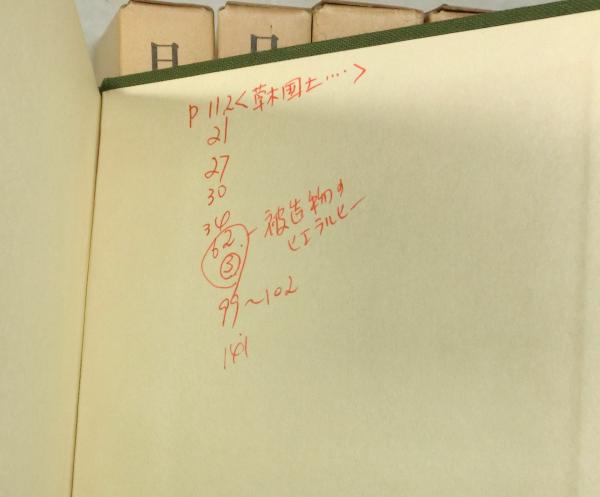 日
日
P 112<草木国土‥‥>
21
27
30
34
62. 被造物の
③ ヒエラルヒー
99〜102
141